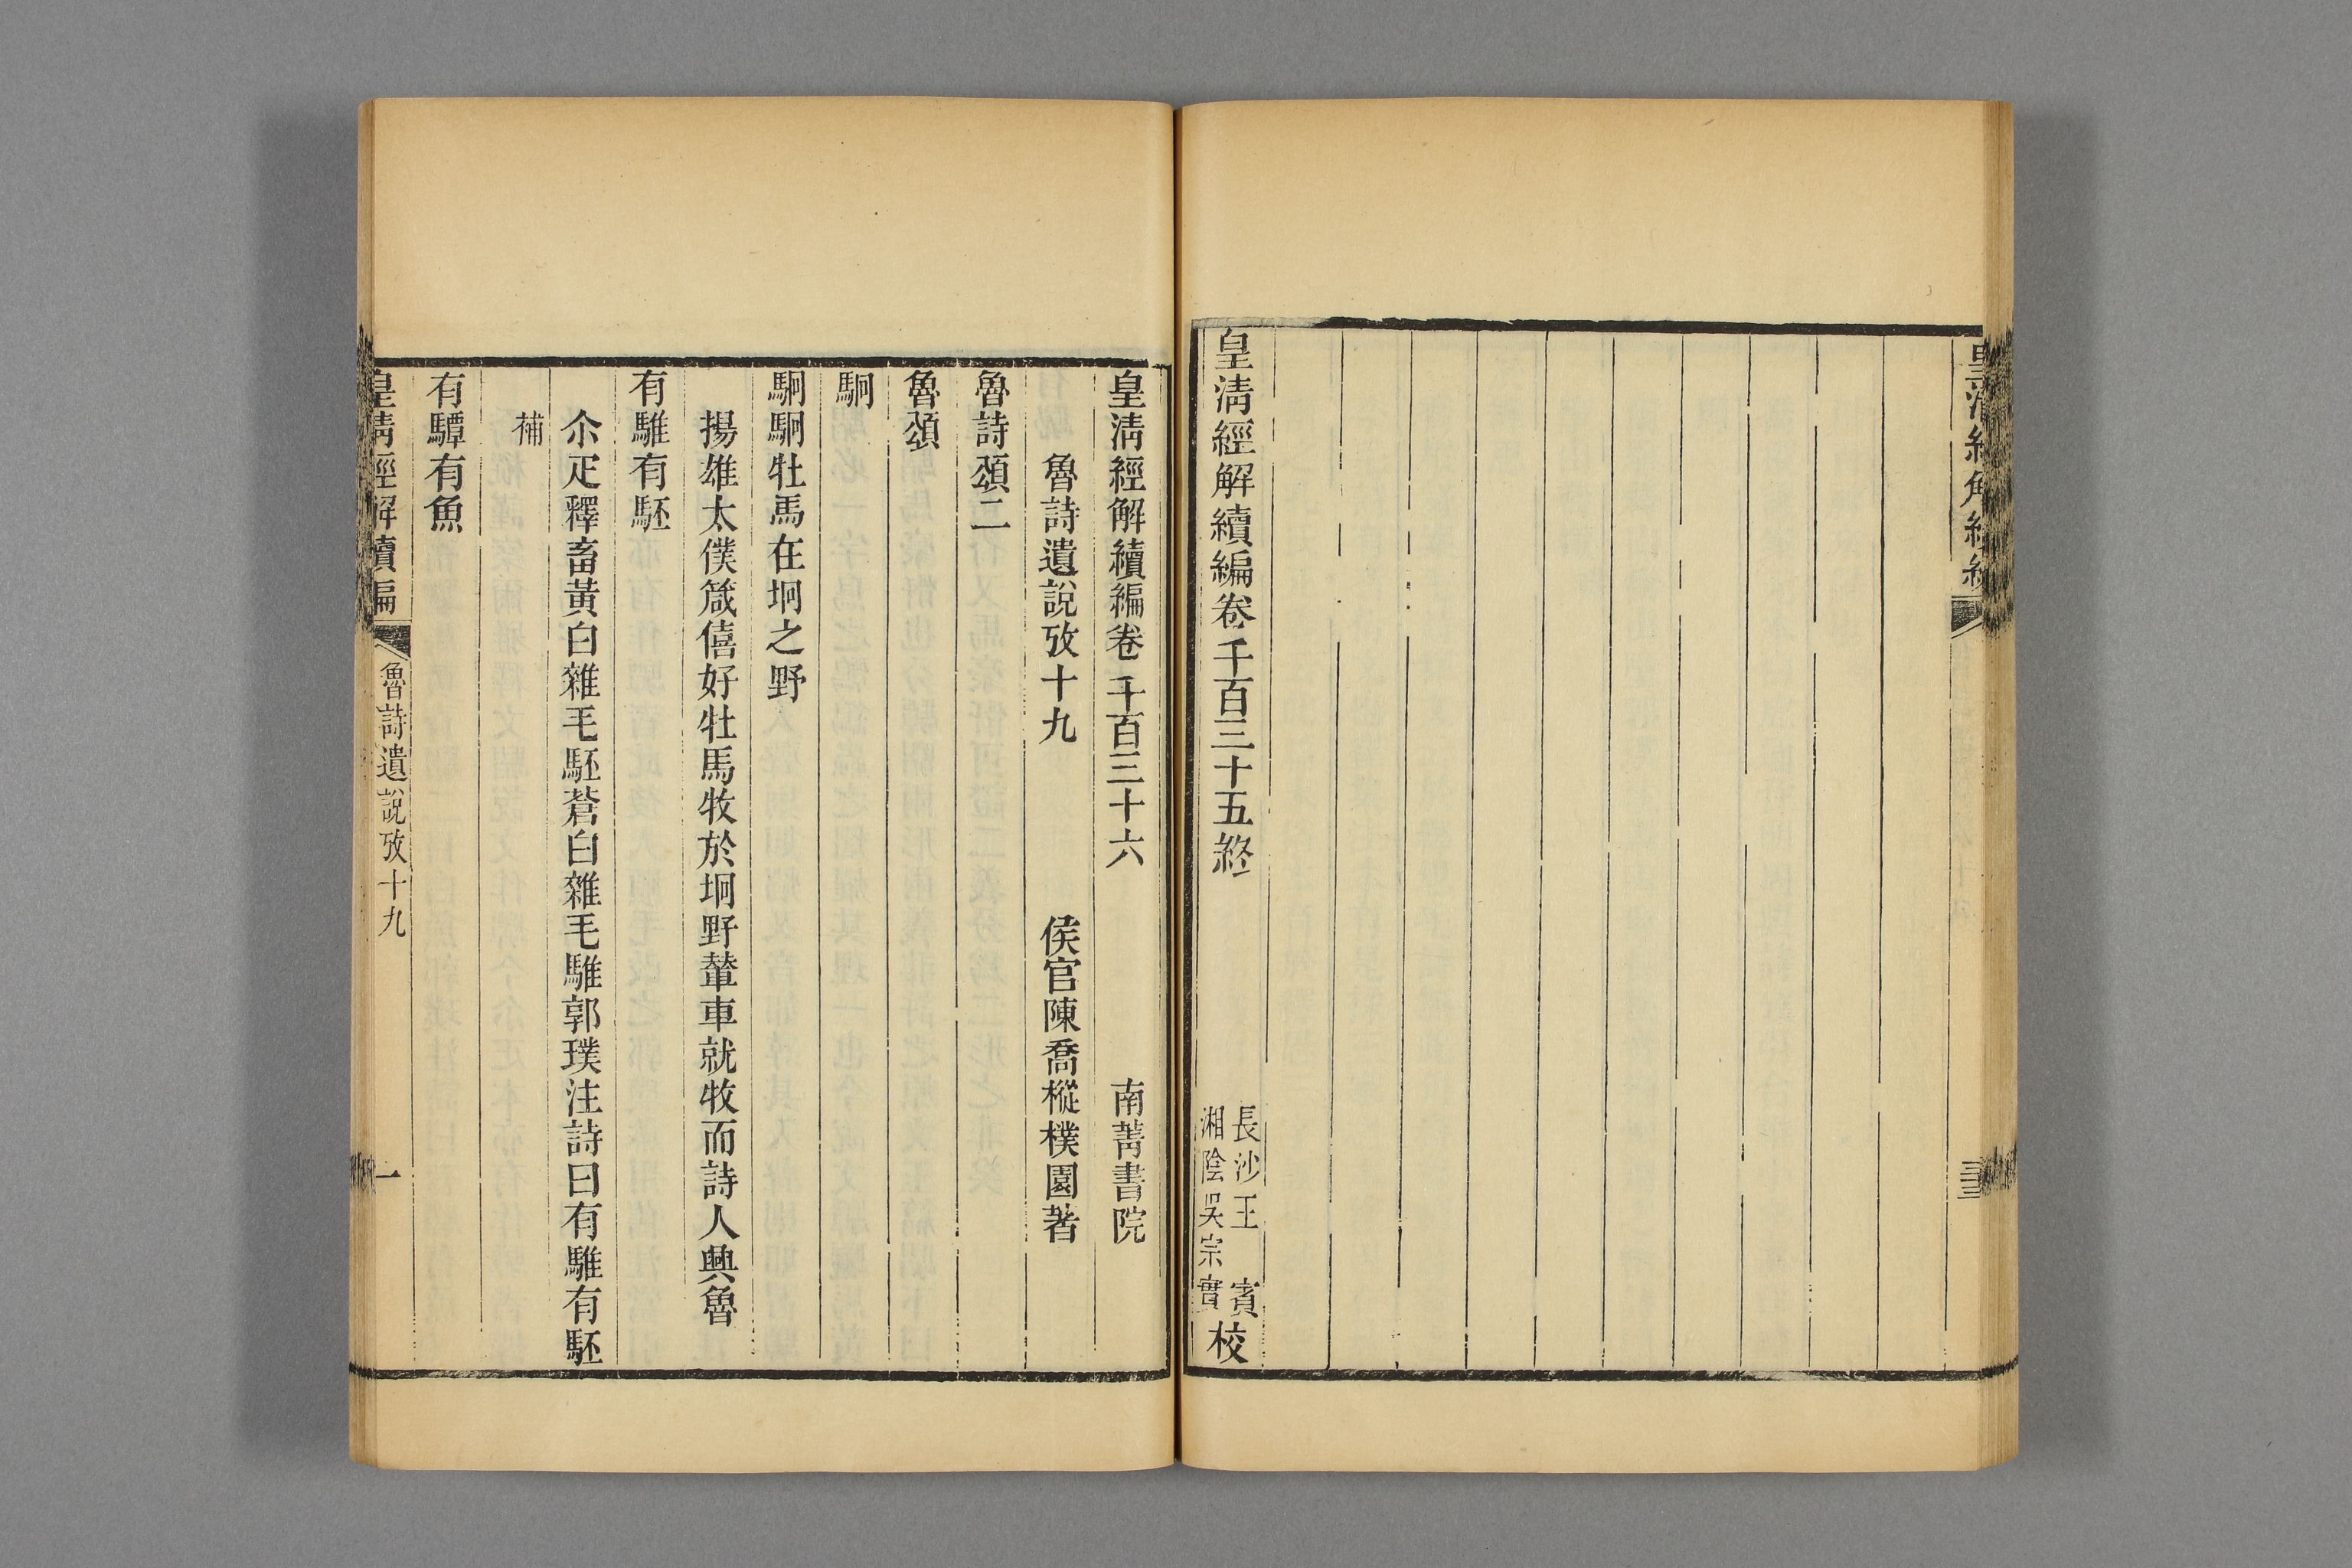 皇清經解續編卷千百三十五終
長沙王賓
湘陰吳宗實
校
皇清經解續編卷千百三十六
南菁書院
魯詩遺說攷十九
侯官陳喬樅樸園著
魯詩頌二
魯頌
駉
駉駉牡馬在坰之野
揚雄太僕箴僖好牡馬牧於坰野輦車就牧而詩人興魯
有騅有駓
尒疋釋畜黃白雜毛駓蒼白雜毛騅郭璞注詩曰有騅有駓
補
有驔有魚
皇清經解續編
魯詩遺說攷十九
一